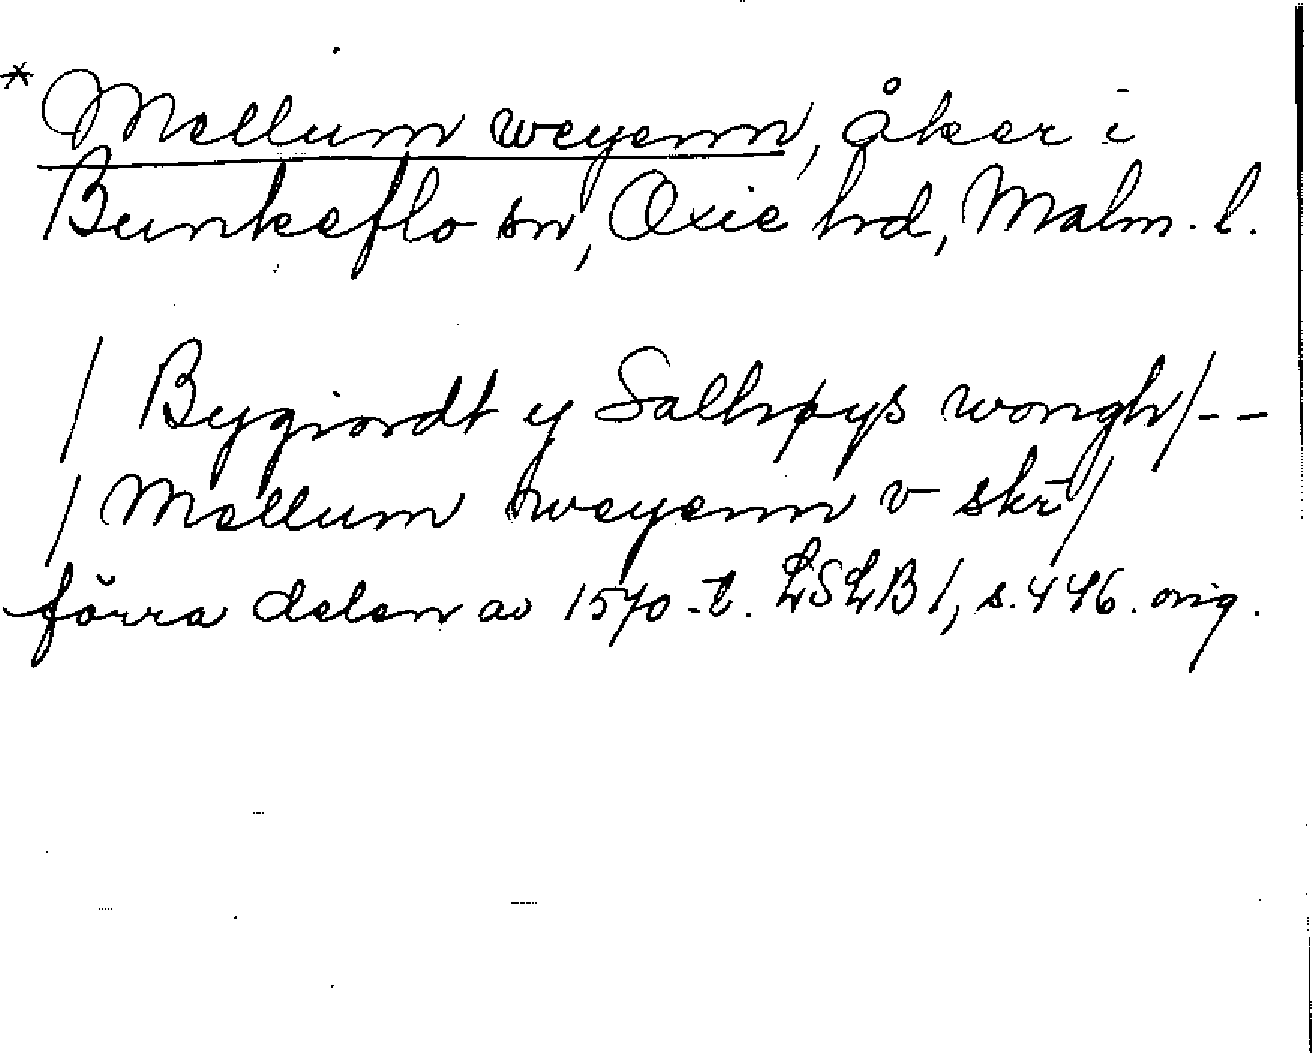 * Mellum weyenn, åker i
Bunkeflo sn, Oxie hrd, Malm. l.
/ Bygiordt y Salhøys wongh / - -
/ Mellum weyenn v skr /
förra delen av 1570-t. LSLB 1, s. 446. orig.